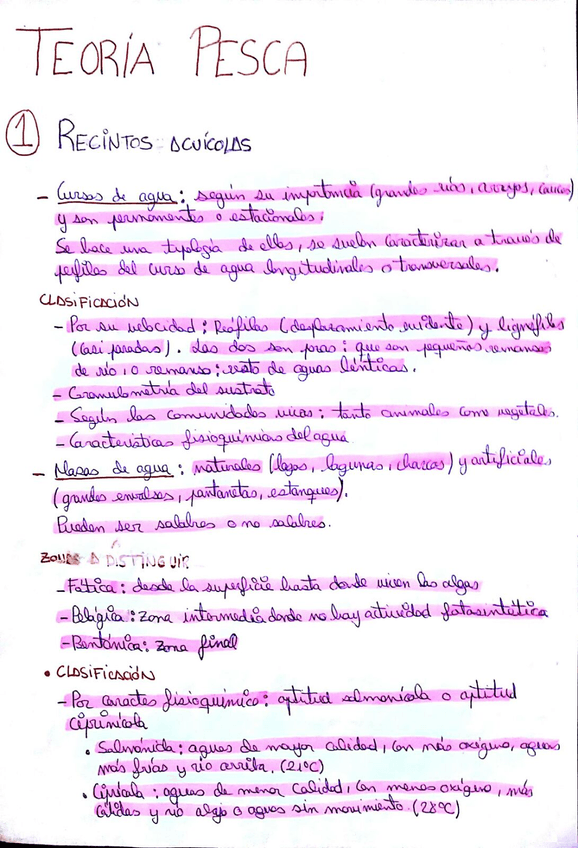 TEORÍA PESCA
① RECINTOS ACUÍCOLAS
- Cursos de agua: según su importncia (grandes ríos, arroyos, cauces)
y son permamentes o estacionales.
Se hace una tipología de ellos, se suelen caracterizar a través de
perfiles del curso de agua longitudinales o transversales.
CLASIFICACIÓN
- Por su velocidad: Reófilas (desplazamiento evidente) y lignófilas
(casi paradas). Las dos son : que son pequeños remansos
de río, o remanso; resto de aguas lénticas.
- Granulometría del sustrato
- Según las comunidades vivas: tanto animales como vegetales.
- Características fisioquímicas del agua
- Masas de agua: naturales (lagos, lagunas, charcas) y artificiales
(grandes envalses, pantanetas, estanques).
Pueden ser salobres o no salobres.
ZONAS A DISTINGUIR
- Fótica: desde la superficie hasta donde viven las algas
- Pelágica: zona intermedia donde no hay actividad fotosintética
- Bentónica: zona final
• CLASIFICACIÓN
- Por caractes fisioquímico: aptitud salmonícola o aptitud
ciprinícola
• Salmónida: aguas de mayor calidad, con más oxígeno, aguas
más frías y río arriba. (21ºC)
• : aguas de menor calidad, con menos oxígeno, más
cálidas y río abajo o aguas sin movimiento. (28ºC)